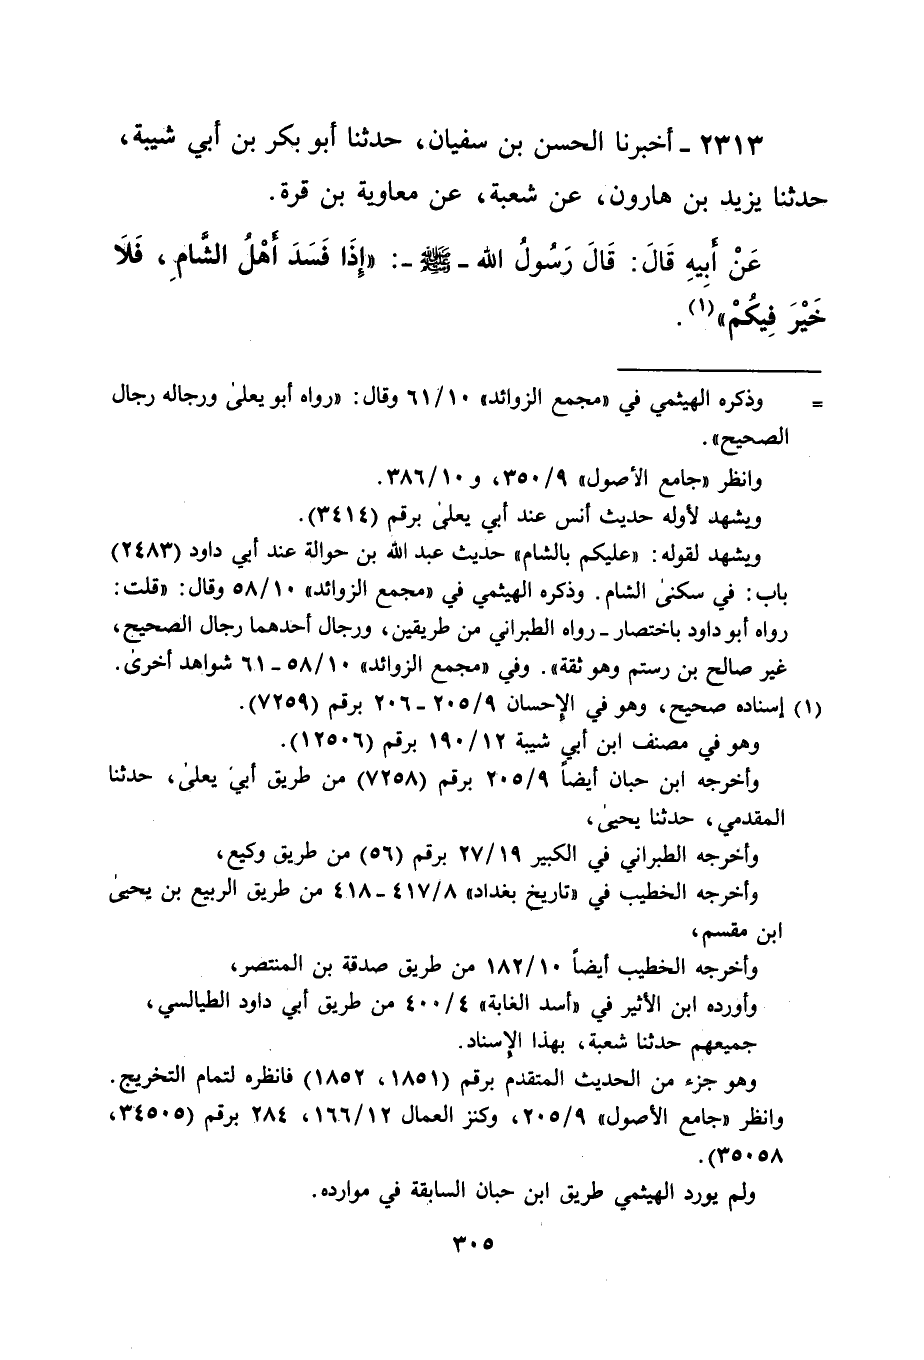 ٢٣١٣ ـ أخبرنا الحسن بن سفيان، حدثنا أبو بكر بن أبي شيبة،
حدثنا يزيد بن هارون، عن شعبة، عن معاوية بن قرة.
عَنْ أَبِيهِ قَالَ: قَالَ رَسُولُ الله ـ ﷺ ـ: «إِذَا فَسَدَ أَهْلُ الشَّامِ، فَلَا
خَيْرَ فِيكُمْ»(١).
= وذكره الهيثمي في «مجمع الزوائد» ٦١/١٠ وقال: «رواه أبو يعلىٰ ورجاله رجال
الصحيح».
وانظر «جامع الأصول» ٣٥٠/٩، و ٣٨٦/١٠.
ويشهد لأوله حديث أنس عند أبي يعلىٰ برقم (٣٤١٤).
ويشهد لقوله: «عليكم بالشام» حديث عبد الله بن حوالة عند أبي داود (٢٤٨٣)
باب: في سكنىٰ الشام. وذكره الهيثمي في «مجمع الزوائد» ٥٨/١٠ وقال: «قلت:
رواه أبو داود باختصار ـ رواه الطبراني من طريقين، ورجال أحدهما رجال الصحيح،
غير صالح بن رستم وهو ثقة». وفي «مجمع الزوائد» ٥٨/١٠ ـ ٦١ شواهد أخرىٰ.
(١) إسناده صحيح، وهو في الإحسان ٢٠٥/٩ ـ ٢٠٦ برقم (٧٢٥٩).
وهو في مصنف ابن أبي شيبة ١٩٠/١٢ برقم (١٢٥٠٦).
وأخرجه ابن حبان أيضاً ٢٠٥/٩ برقم (٧٢٥٨) من طريق أبي يعلىٰ، حدثنا
المقدمي، حدثنا يحيىٰ،
وأخرجه الطبراني في الكبير ٢٧/١٩ برقم (٥٦) من طريق وكيع،
وأخرجه الخطيب في «تاريخ بغداد» ٤١٧/٨ ـ ٤١٨ من طريق الربيع بن يحيىٰ
ابن مقسم،
وأخرجه الخطيب أيضاً ١٨٢/١٠ من طريق صدقة بن المنتصر،
وأورده ابن الأثير في «أسد الغابة» ٤٠٠/٤ من طريق أبي داود الطيالسي،
جميعهم حدثنا شعبة، بهذا الإسناد.
وهو جزء من الحديث المتقدم برقم (١٨٥١، ١٨٥٢) فانظره لتمام التخريج.
وانظر «جامع الأصول» ٢٠٥/٩، وكنز العمال ١٦٦/١٢، ٢٨٤ برقم (٣٤٥٠٥،
٣٥٠٥٨).
ولم يورد الهيثمي طريق ابن حبان السابقة في موارده.
٣٠٥